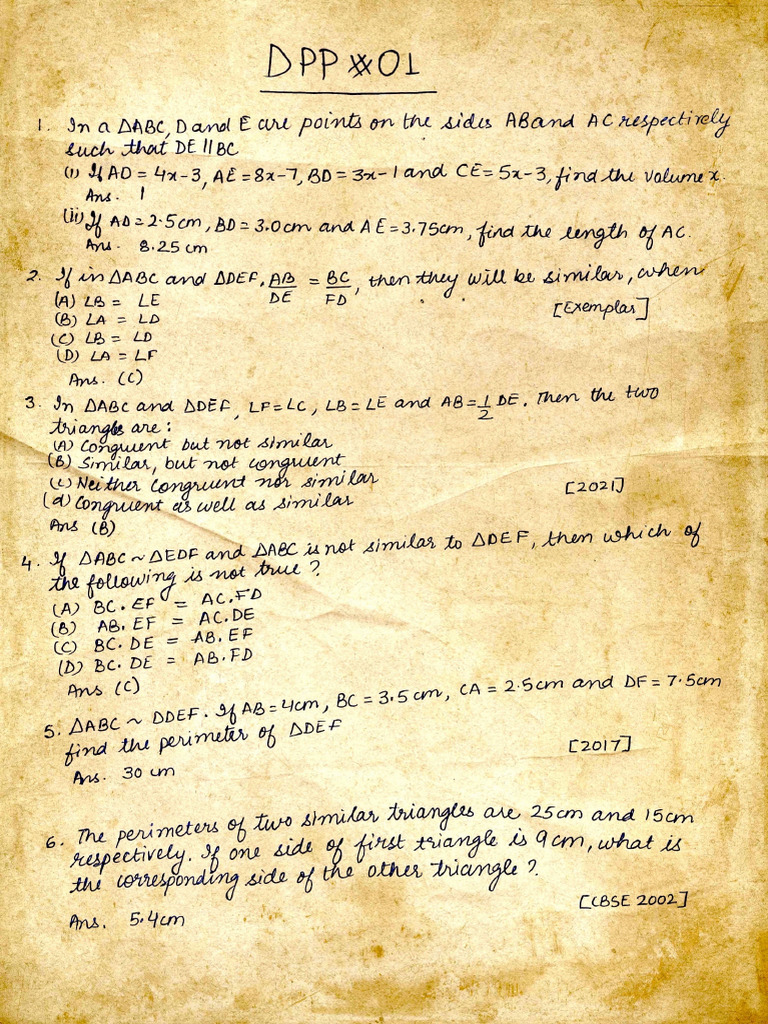 DPP #01
1. In a ΔABC, D and E are points on the sides AB and AC respectively
such that DE || BC
(i) If AD = 4x-3, AE = 8x-7, BD = 3x-1 and CE = 5x-3, find the volume x.
Ans. 1
(ii) If AD = 2.5cm, BD = 3.0cm and AE = 3.75cm, find the length of AC.
Ans. 8.25 cm
2. If in ΔABC and ΔDEF, AB/DE = BC/FD, then they will be similar, when
[Exemplar]
(A) ∠B = ∠E
(B) ∠A = ∠D
(C) ∠B = ∠D
(D) ∠A = ∠F
Ans. (C)
3. In ΔABC and ΔDEF, ∠F = ∠C, ∠B = ∠E and AB = 1/2 DE. Then the two
triangles are :
(A) Congruent but not similar
(B) Similar, but not congruent
(C) Neither congruent nor similar
[2021]
(d) Congruent as well as similar
Ans (B)
4. If ΔABC ~ ΔEDF and ΔABC is not similar to ΔDEF, then which of
the following is not true ?
(A) BC. EF = AC. FD
(B) AB. EF = AC. DE
(C) BC. DE = AB. EF
(D) BC. DE = AB. FD
Ans (C)
5. ΔABC ~ DDEF. If AB = 4cm, BC = 3.5 cm, CA = 2.5cm and DF = 7.5cm
find the perimeter of ΔDEF
[2017]
Ans. 30 cm
6. The perimeters of two similar triangles are 25cm and 15cm
respectively. If one side of first triangle is 9cm, what is
the corresponding side of the other triangle ?
[CBSE 2002]
Ans. 5.4cm